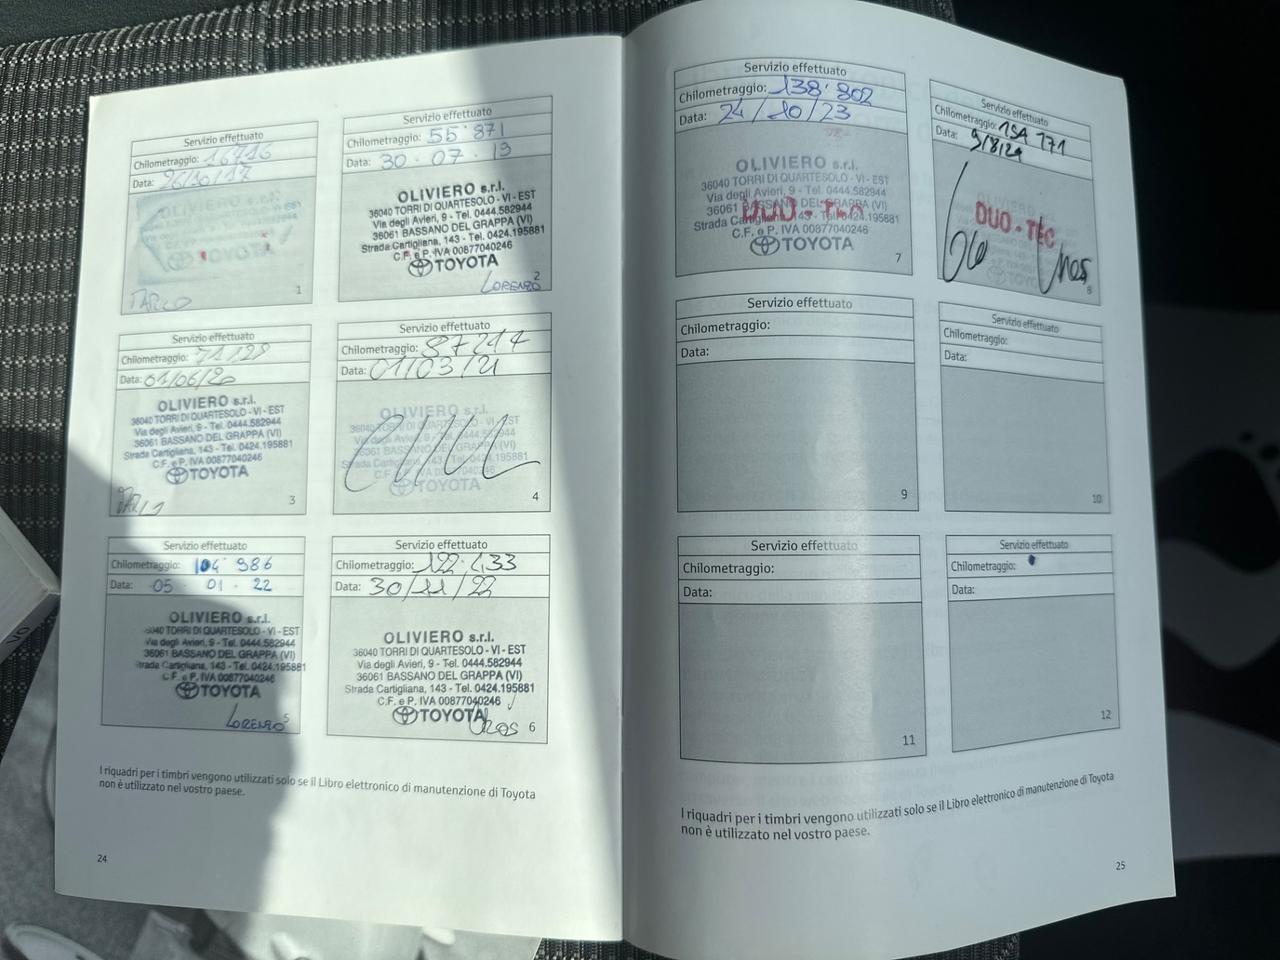 Servizio effettuato
Chilometraggio: 16716
Data: 26/10/17
OLIVIERO s.r.l.
TOYOTA
1
Servizio effettuato
Chilometraggio: 55'871
Data: 30 - 07 - 19
OLIVIERO s.r.l.
36040 TORRI DI QUARTESOLO - VI - EST
Via degli Avieri, 9 - Tel. 0444.582944
36061 BASSANO DEL GRAPPA (VI)
Strada Cartigliana, 143 - Tel. 0424.195881
C.F. e P. IVA 00877040246
TOYOTA
2
LORENZO
Servizio effettuato
Chilometraggio: 71128
Data: 01/06/20
OLIVIERO s.r.l.
36040 TORRI DI QUARTESOLO - VI - EST
Via degli Avieri, 9 - Tel. 0444.582944
36061 BASSANO DEL GRAPPA (VI)
Strada Cartigliana, 143 - Tel. 0424.195881
C.F. e P. IVA 00877040246
TOYOTA
3
Servizio effettuato
Chilometraggio: 87214
Data: 01/03/21
OLIVIERO s.r.l.
36040 TORRI DI QUARTESOLO - VI - EST
Via degli Avieri, 9 - Tel. 0444.582944
36061 BASSANO DEL GRAPPA (VI)
Strada Cartigliana, 143 - Tel. 0424.195881
C.F. e P. IVA 00877040246
TOYOTA
4
Servizio effettuato
Chilometraggio: 104'986
Data: 05 - 01 - 22
OLIVIERO s.r.l.
36040 TORRI DI QUARTESOLO - VI - EST
Via degli Avieri, 9 - Tel. 0444.582944
36061 BASSANO DEL GRAPPA (VI)
Strada Cartigliana, 143 - Tel. 0424.195881
C.F. e P. IVA 00877040246
TOYOTA
LORENZO 5
Servizio effettuato
Chilometraggio: 122.433
Data: 30/11/22
OLIVIERO s.r.l.
36040 TORRI DI QUARTESOLO - VI - EST
Via degli Avieri, 9 - Tel. 0444.582944
36061 BASSANO DEL GRAPPA (VI)
Strada Cartigliana, 143 - Tel. 0424.195881
C.F. e P. IVA 00877040246
TOYOTA
6
I riquadri per i timbri vengono utilizzati solo se il Libro elettronico di manutenzione di Toyota
non è utilizzato nel vostro paese.
24
Servizio effettuato
Chilometraggio: 138'802
Data: 24/10/23
OLIVIERO s.r.l.
36040 TORRI DI QUARTESOLO - VI - EST
Via degli Avieri, 9 - Tel. 0444.582944
36061 BASSANO DEL GRAPPA (VI)
Strada Cartigliana, 143 - Tel. 0424.195881
C.F. e P. IVA 00877040246
TOYOTA
7
Servizio effettuato
Chilometraggio: 154 771
Data: 9/8/24
DUO-TEC
8
Servizio effettuato
Chilometraggio:
Data:
9
Servizio effettuato
Chilometraggio:
Data:
10
Servizio effettuato
Chilometraggio:
Data:
11
Servizio effettuato
Chilometraggio:
Data:
12
I riquadri per i timbri vengono utilizzati solo se il Libro elettronico di manutenzione di Toyota
non è utilizzato nel vostro paese.
25